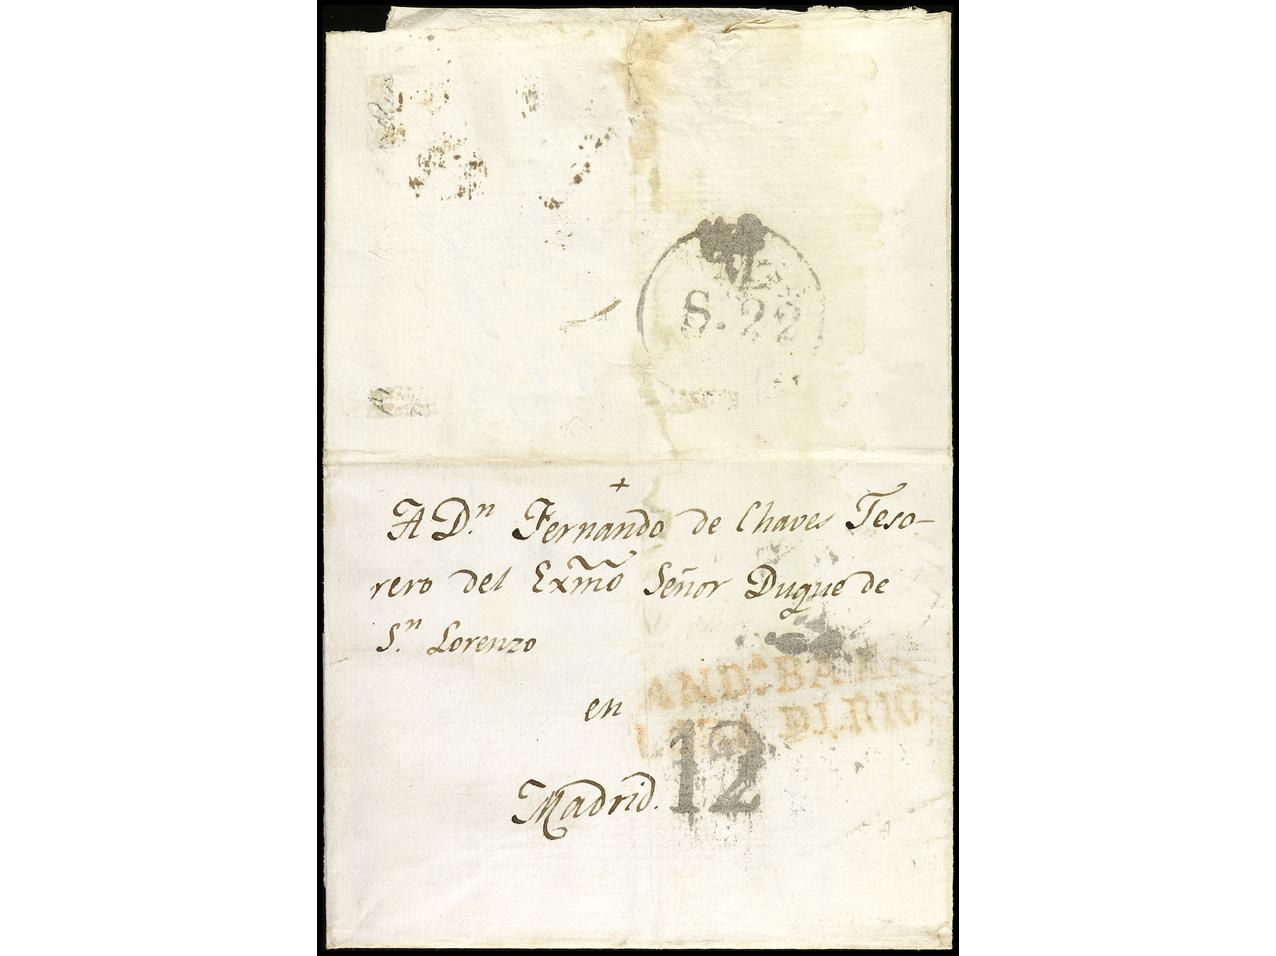 S. 22
+
A Dn. Fernando de Chaves Teso-
rero del Exmõ Señor Duque de
Sn. Lorenzo
en
ANDa. BAXA
12
Madrid.